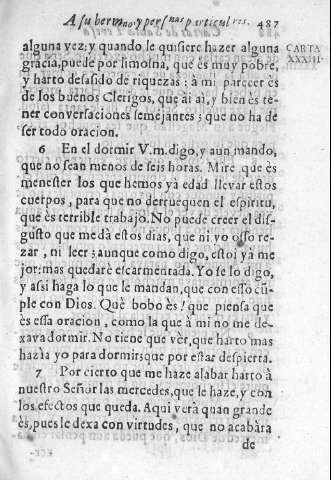 A su hermano, y personas particulares. 487
alguna vez; y quando le quisiere hazer alguna
gracia, puede por limosna, que es muy pobre,
y harto desasido de riquezas; à mi parecer ès
de los buenos Clerigos, que ài ai, y bien ès te-
ner conversaciones semejantes; que no ha de
ser todo oracion.
CARTA
XXXIII.
6 En el dormir V.m. digo, y aun mando,
que no sean menos de seis horas. Mire que ès
menester los que hemos yà edad llevar estos
cuerpos, para que no derruequen el espiritu,
que ès terrible trabajo. No puede creer el dis-
gusto que me dà estos dias, que ni yo osso re-
zar, ni leer; aunque como digo, estoi yà me
jor: mas quedarè escarmentada. Yo se lo digo,
y assi haga lo que le mandan, que con esso cũ-
ple con Dios. Què bobo ès! que piensa que
ès essa oracion, como la que à mi no me de-
xava dormir. No tiene que vèr, que harto mas
hazìa yo para dormir; que por estar despierta.
7 Por cierto que me haze alabar harto à
nuestro Señor las mercedes, que le haze, y con
los efectos que queda. Aqui verà quan grande
ès, pues le dexa con virtudes, que no acabàra
de